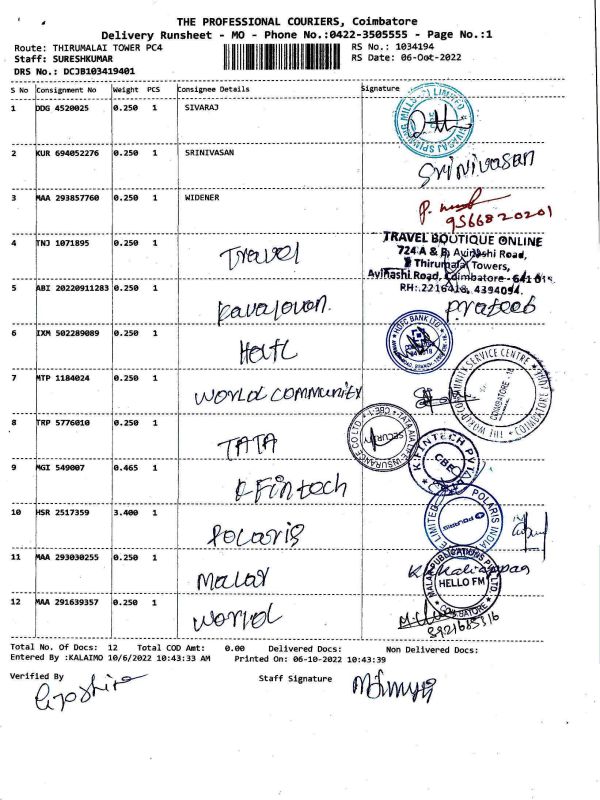 THE PROFESSIONAL COURIERS, Coimbatore
Delivery Runsheet - MO - Phone No.:0422-3505555 - Page No.:1
Route: THIRUMALAI TOWER PC4
RS No.: 1034194
Staff: SURESHKUMAR
RS Date: 06-Oct-2022
DRS No.: DCJB103419401
S No Consignment No Weight PCS Consignee Details Signature
1 DDG 4520025 0.250 1 SIVARAJ
SIVARAJ SPINNING MILLS (P) LIMITED
2 KUR 694052276 0.250 1 SRINIVASAN
Srinivasan
3 MAA 293857760 0.250 1 WIDENER
9566820201
4 TNJ 1071895 0.250 1 Travel
TRAVEL BOUTIQUE ONLINE
724 A & B, Avinashi Road,
Thirumalai Towers,
Avinashi Road, Coimbatore - 641 018.
PH: 2216418, 4394094.
5 ABI 20220911283 0.250 1
Prateeb
6 IXM 502289089 0.250 1
HDFC BANK LTD
7 MTP 1184024 0.250 1 WORLD COMMUNITY
THE WORLD COMMUNITY SERVICE CENTRE
COIMBATORE - 18
8 TRP 5776010 0.250 1 TATA
TATA AIA LIFE INSURANCE CO LTD
CBE-1
SECURITY
9 MGI 549007 0.465 1 KFintech
K FINTECH PVT
CBE
10 HSR 2517359 3.400 1 Polaris
POLARIS INDIA
LIMITED
POLARIS
11 MAA 293030255 0.250 1 Malar
MALAR PUBLICATIONS PVT LTD
HELLO FM
COIMBATORE
12 MAA 291639357 0.250 1 World
8921685316
Total No. Of Docs: 12 Total COD Amt: 0.00 Delivered Docs: Non Delivered Docs:
Entered By :KALAIMO 10/6/2022 10:43:33 AM Printed On: 06-10-2022 10:43:39
Verified By
Staff Signature